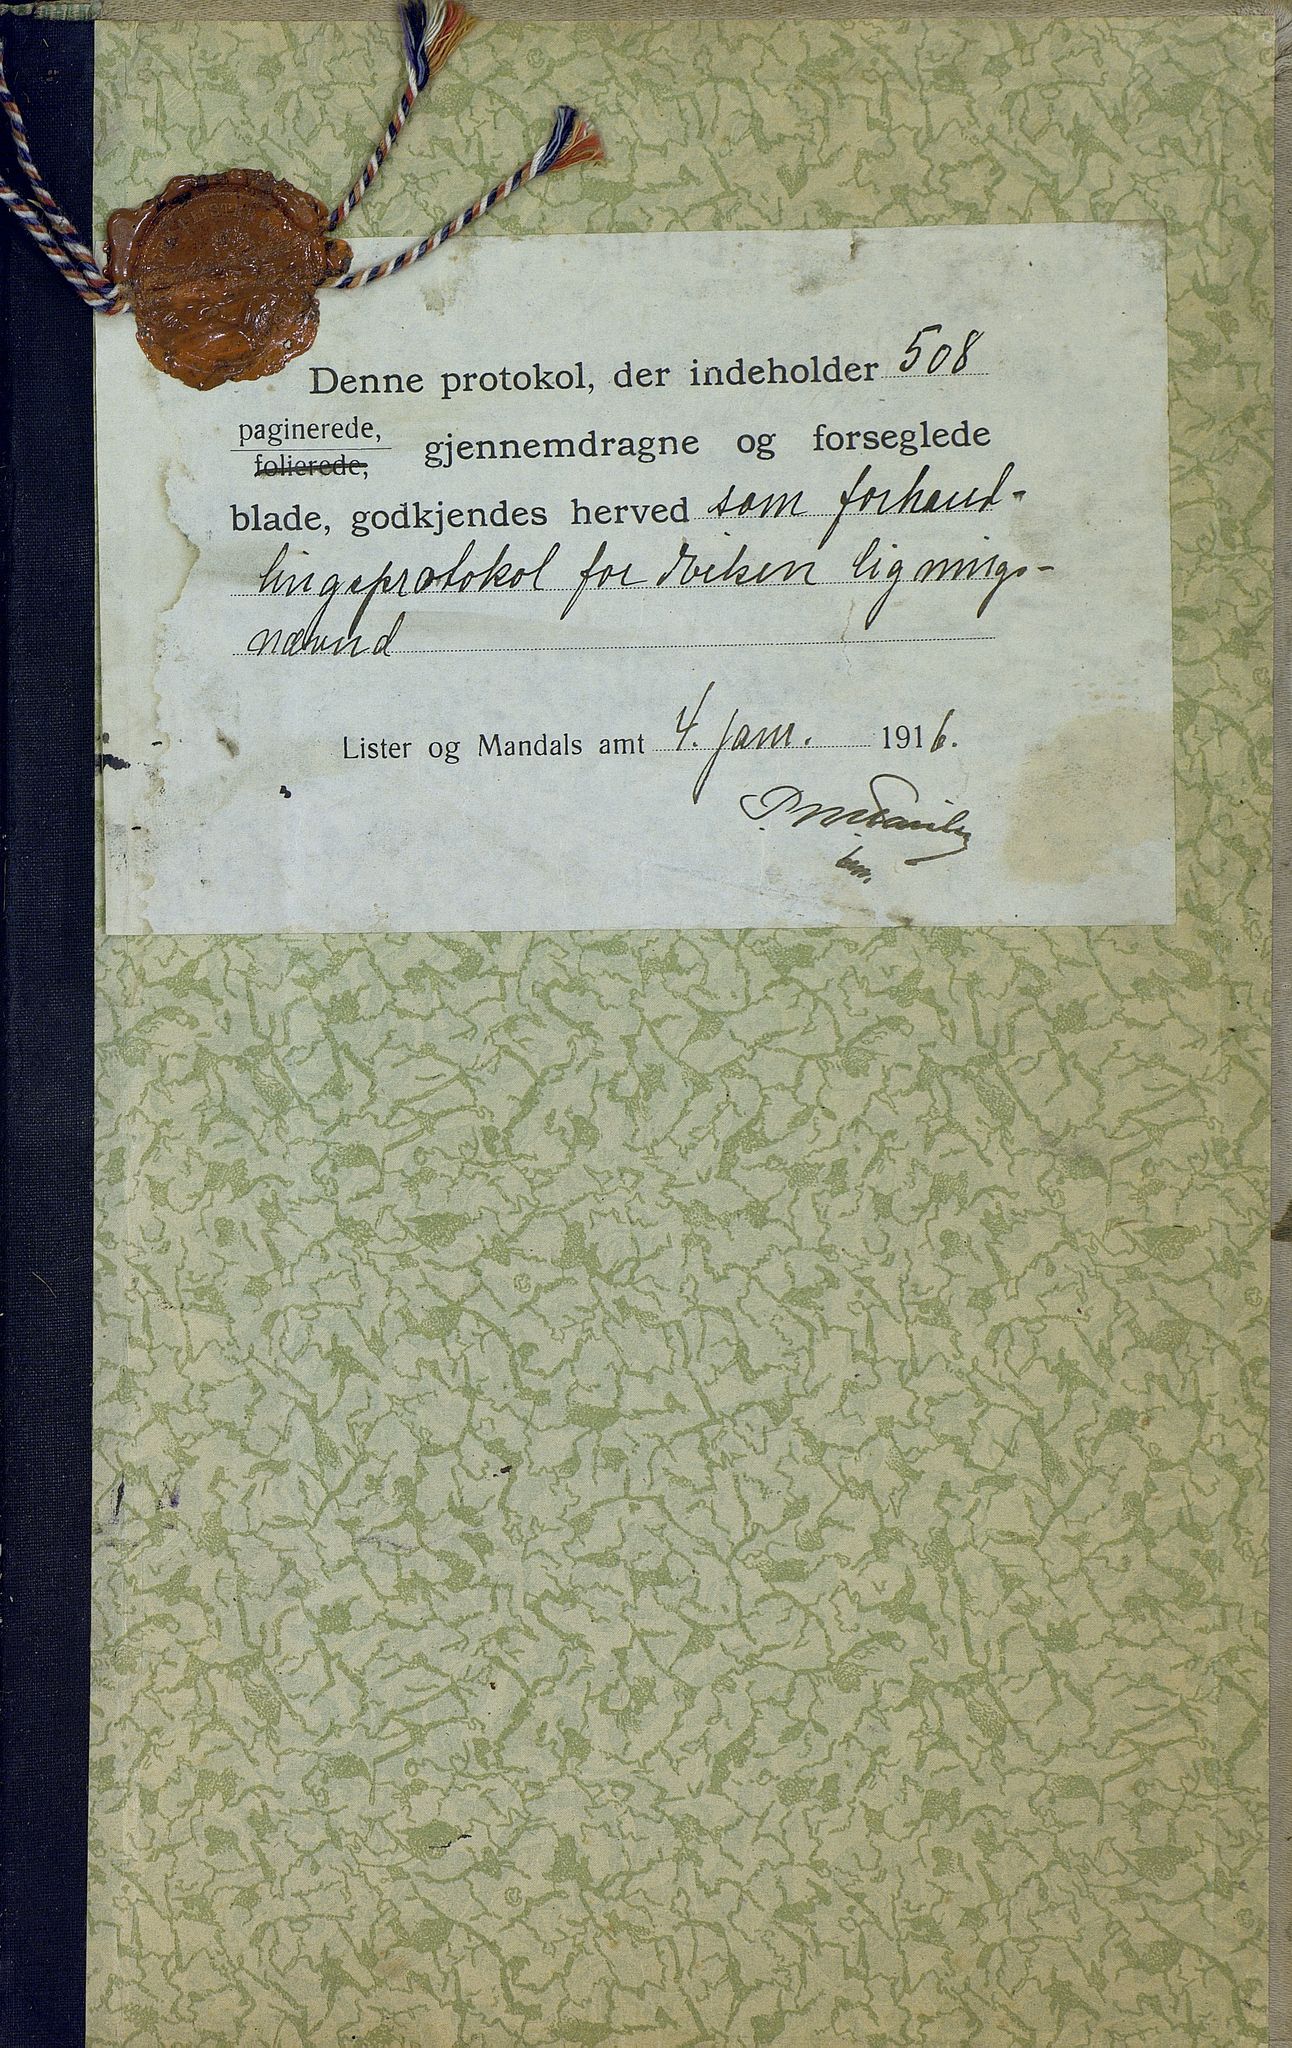 Denne protokol, der indeholder 508
paginerede,
folierede,
gjennemdragne og forseglede
blade, godkjendes herved som forhand-
lingsprotokol for Øiken lignings-
nævnd
Lister og Mandals amt 4. janr. 1916.